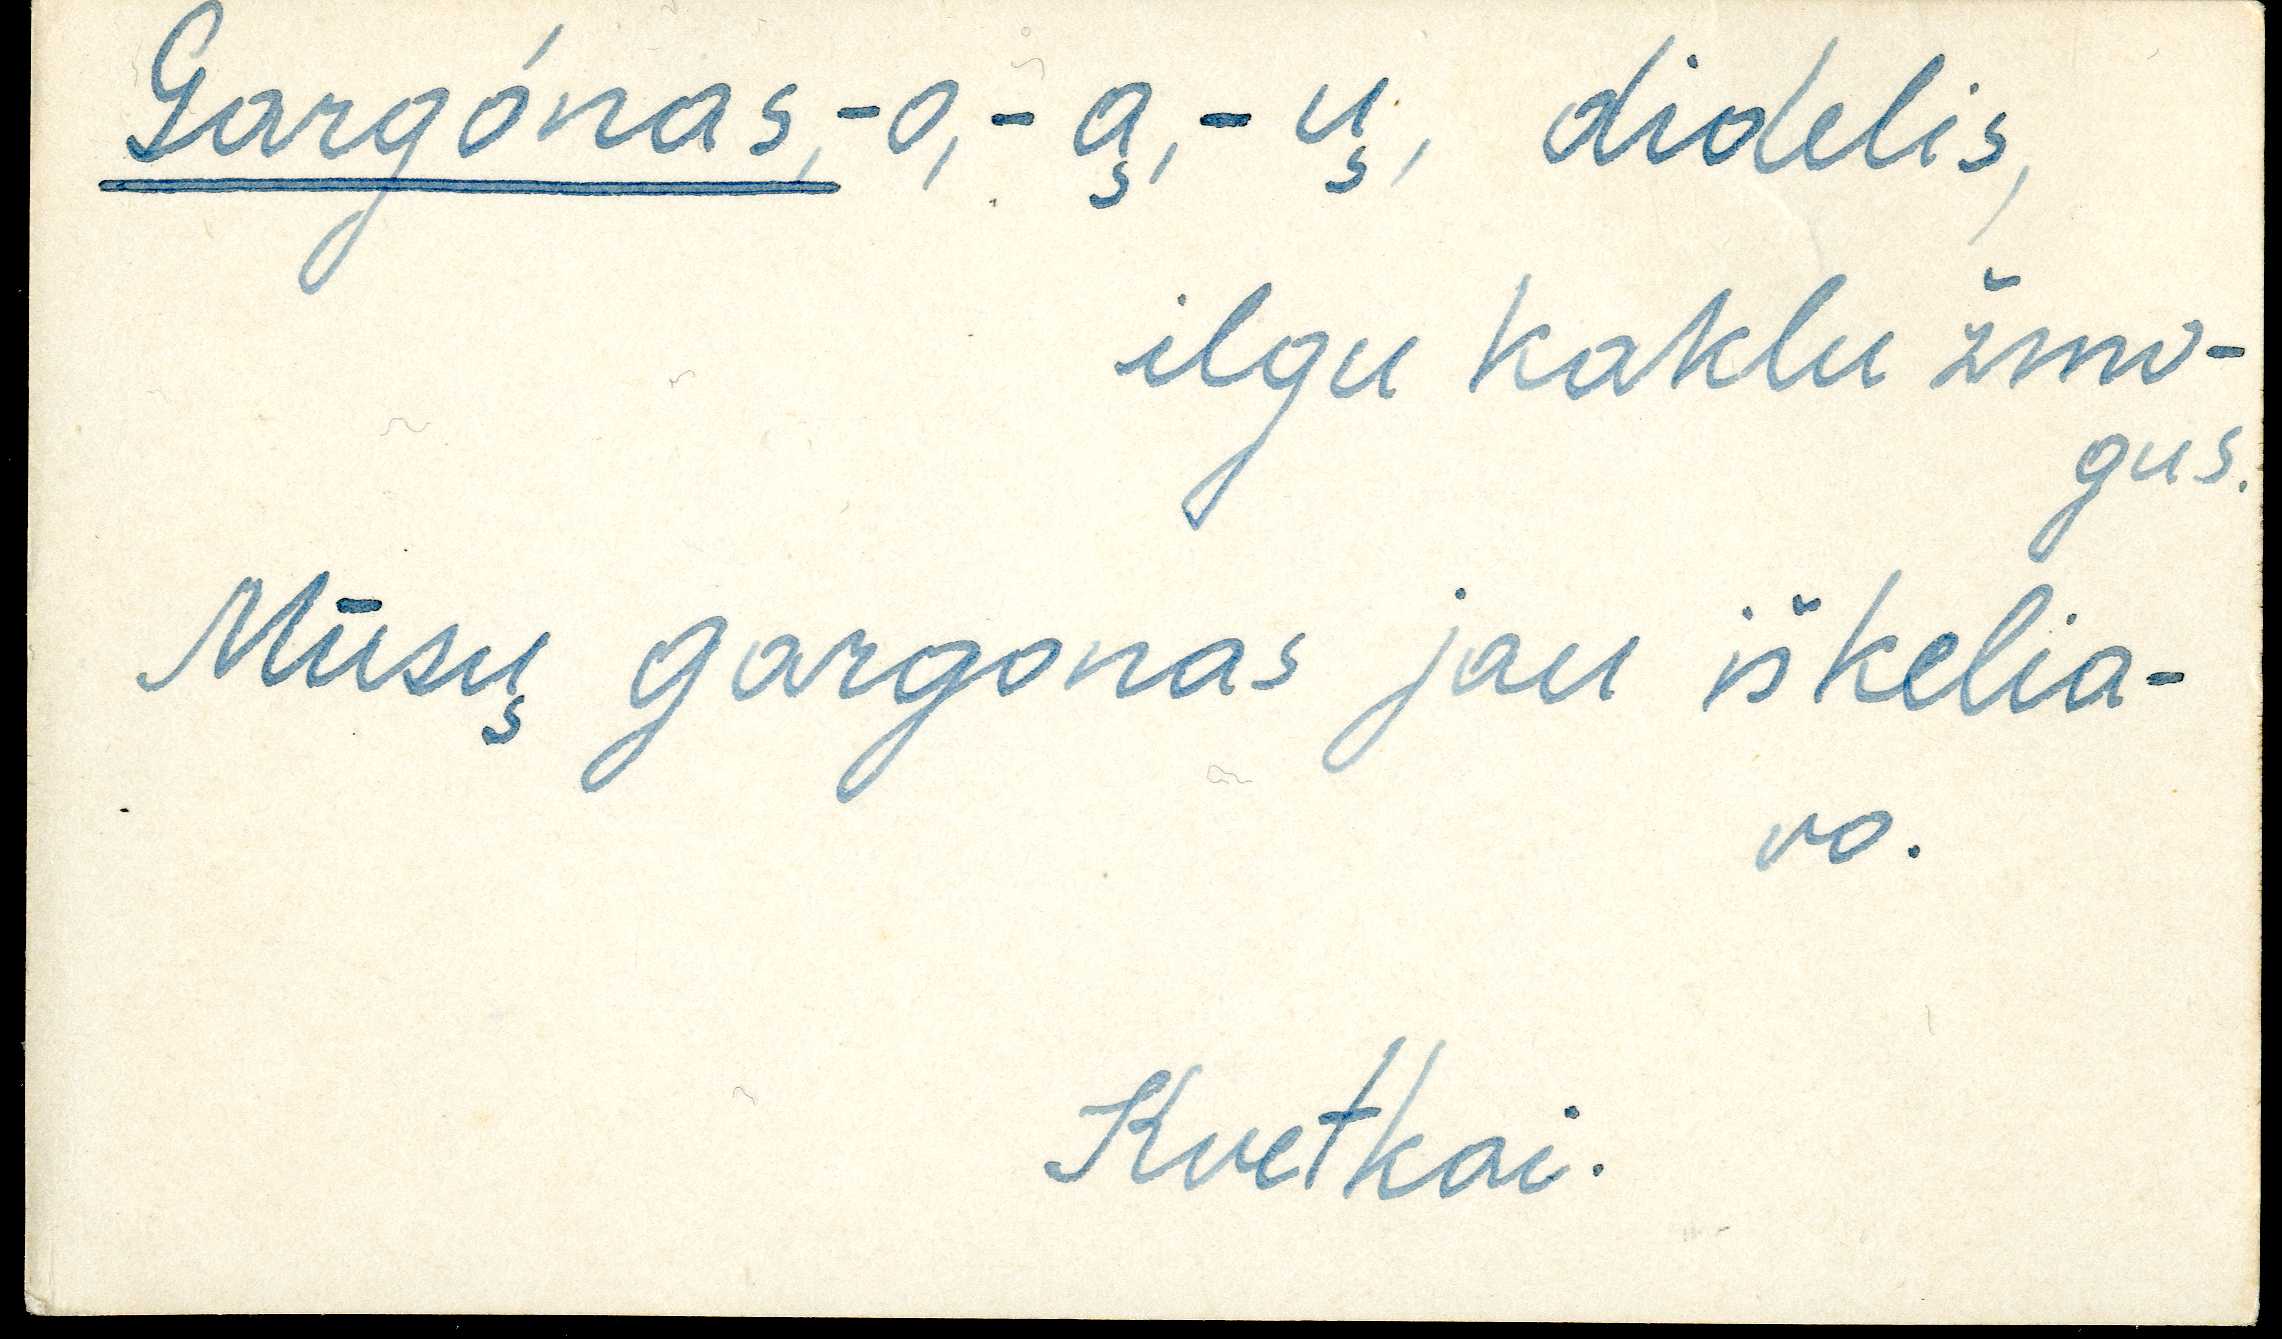 Gargónas, -o, -ą, -ų, didelis,
ilgu kaklu žmo-
gus.
Mūsų gargonas jau iškelia-
vo.
Kvetkai.